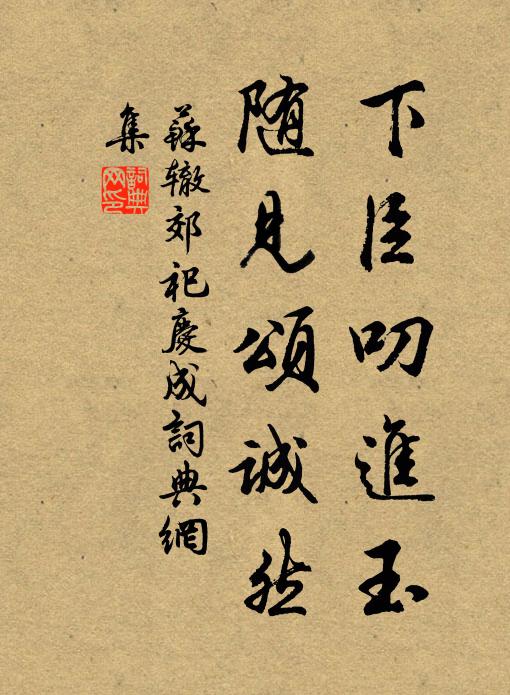 下臣叨進玉
随見頌誠然
蘇轍郊祀慶成詞典網
集
詞典
网印